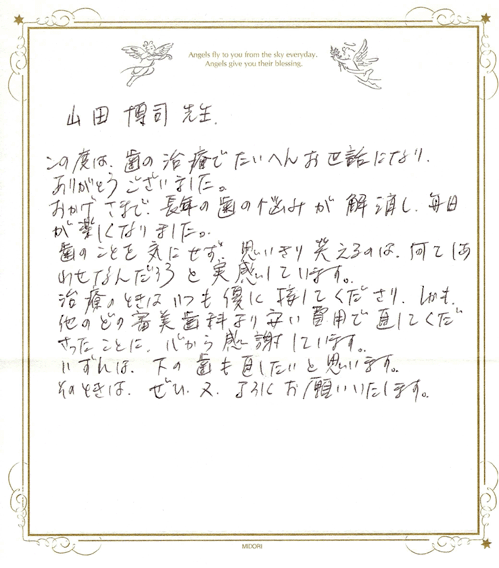 Angels fly to you from the sky everyday.
Angels give you their blessing.
山田 博司 先生.
この度は、歯の治療でたいへんお世話になり、
ありがとうございました。
おかげさまで、長年の歯の悩みが解消し、毎日
が楽しくなりました。
歯のことを気にせず、思いきり笑えるのは、何てしあ
わせなんだろうと実感しています。
治療のときはいつも優しく接してくださり、しかも、
他のどの審美歯科より安い費用で直してくだ
さったことに、心から感謝しています。
いずれは、下の歯も直したいと思います。
そのときは、ぜひ、又、よろしくお願いいたします。
MIDORI